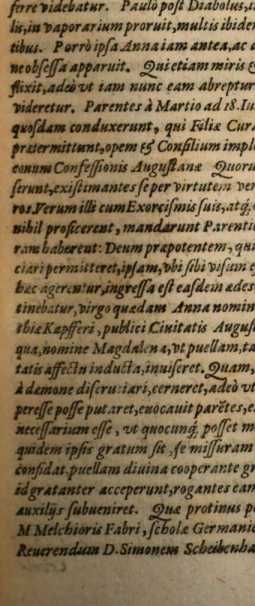 ferre videbatur. Paulò post Diabolus, i
lis, in vaporarium proruit, multis ibiden
tibus. Porrò ipsa Anna iam antea, ac d
ne obsessa apparuit. Qui etiam miris e
flixit, adeò vt iam nunc eam abreptur
videretur. Parentes à Martio ad 18. Iu
quosdam conduxerunt, qui Filiæ Cura
prætermittunt, opem & Consilium impl
eonum Confessionis Augustanæ Quoru
serunt, existimantes se per virtutem ver
ros. Verum illi cum Exorcismis suis, atq́;
nihil proficerent, mandarunt Parenti
ram haberent: Deum præpotentem, qui
ciari permitteret, ipsam, vbi sibi visum e
hæc agerentur, ingressa est easdem ædes
tinebatur, virgo quædam Anna nomin
thiæ Kapfferi, publici Ciuitatis August
qua, nomine Magdalena, vt puellam, ta
tatis affectu inducta, inuiseret. Quam,
à dæmone discruciari, cerneret, adeò vt
peresse posse putaret, euocauit parētes, e
necessarium esse, vt quocunq́; posset m
quidem ipsis gratum sit, se missuram
confidat puellam diuina cooperante gr
id gratanter acceperunt, rogantes eam
auxilijs subueniret. Quæ protinus p
M Melchioris Fabri, scholæ Germanic
Reuerendum D. Simonem Scheibenha